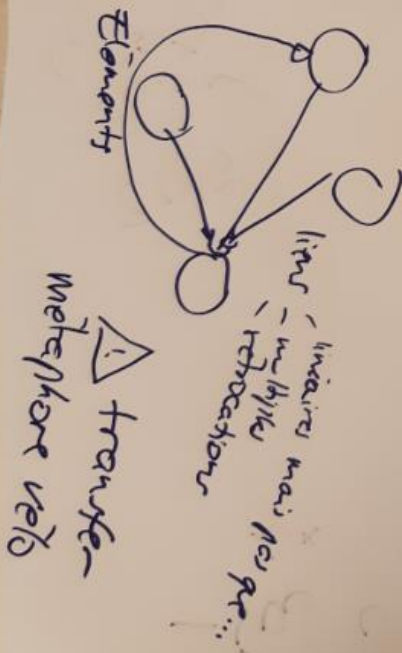 Elements
liens - linéaires mais pas que...
- multiples
- rétroactions
! transfer
métaphore vélo